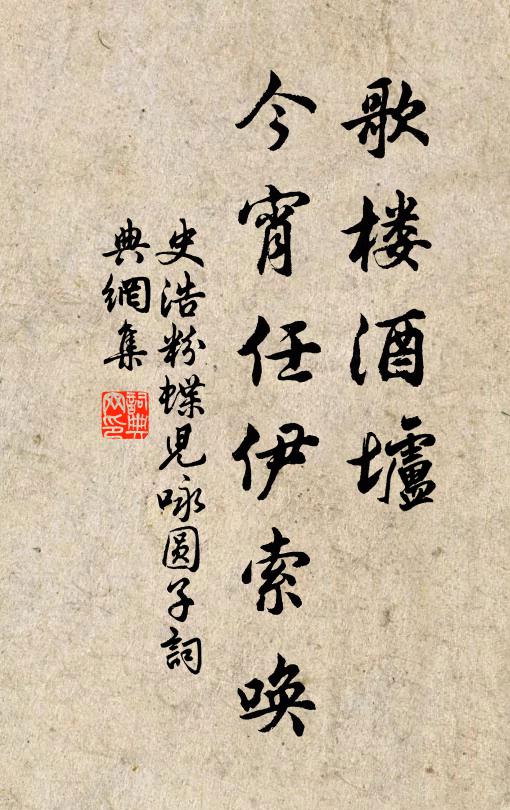 歌楼酒壚
今宵任伊索唤
史浩粉蝶児咏圆子詞
典網集
詞典
网印